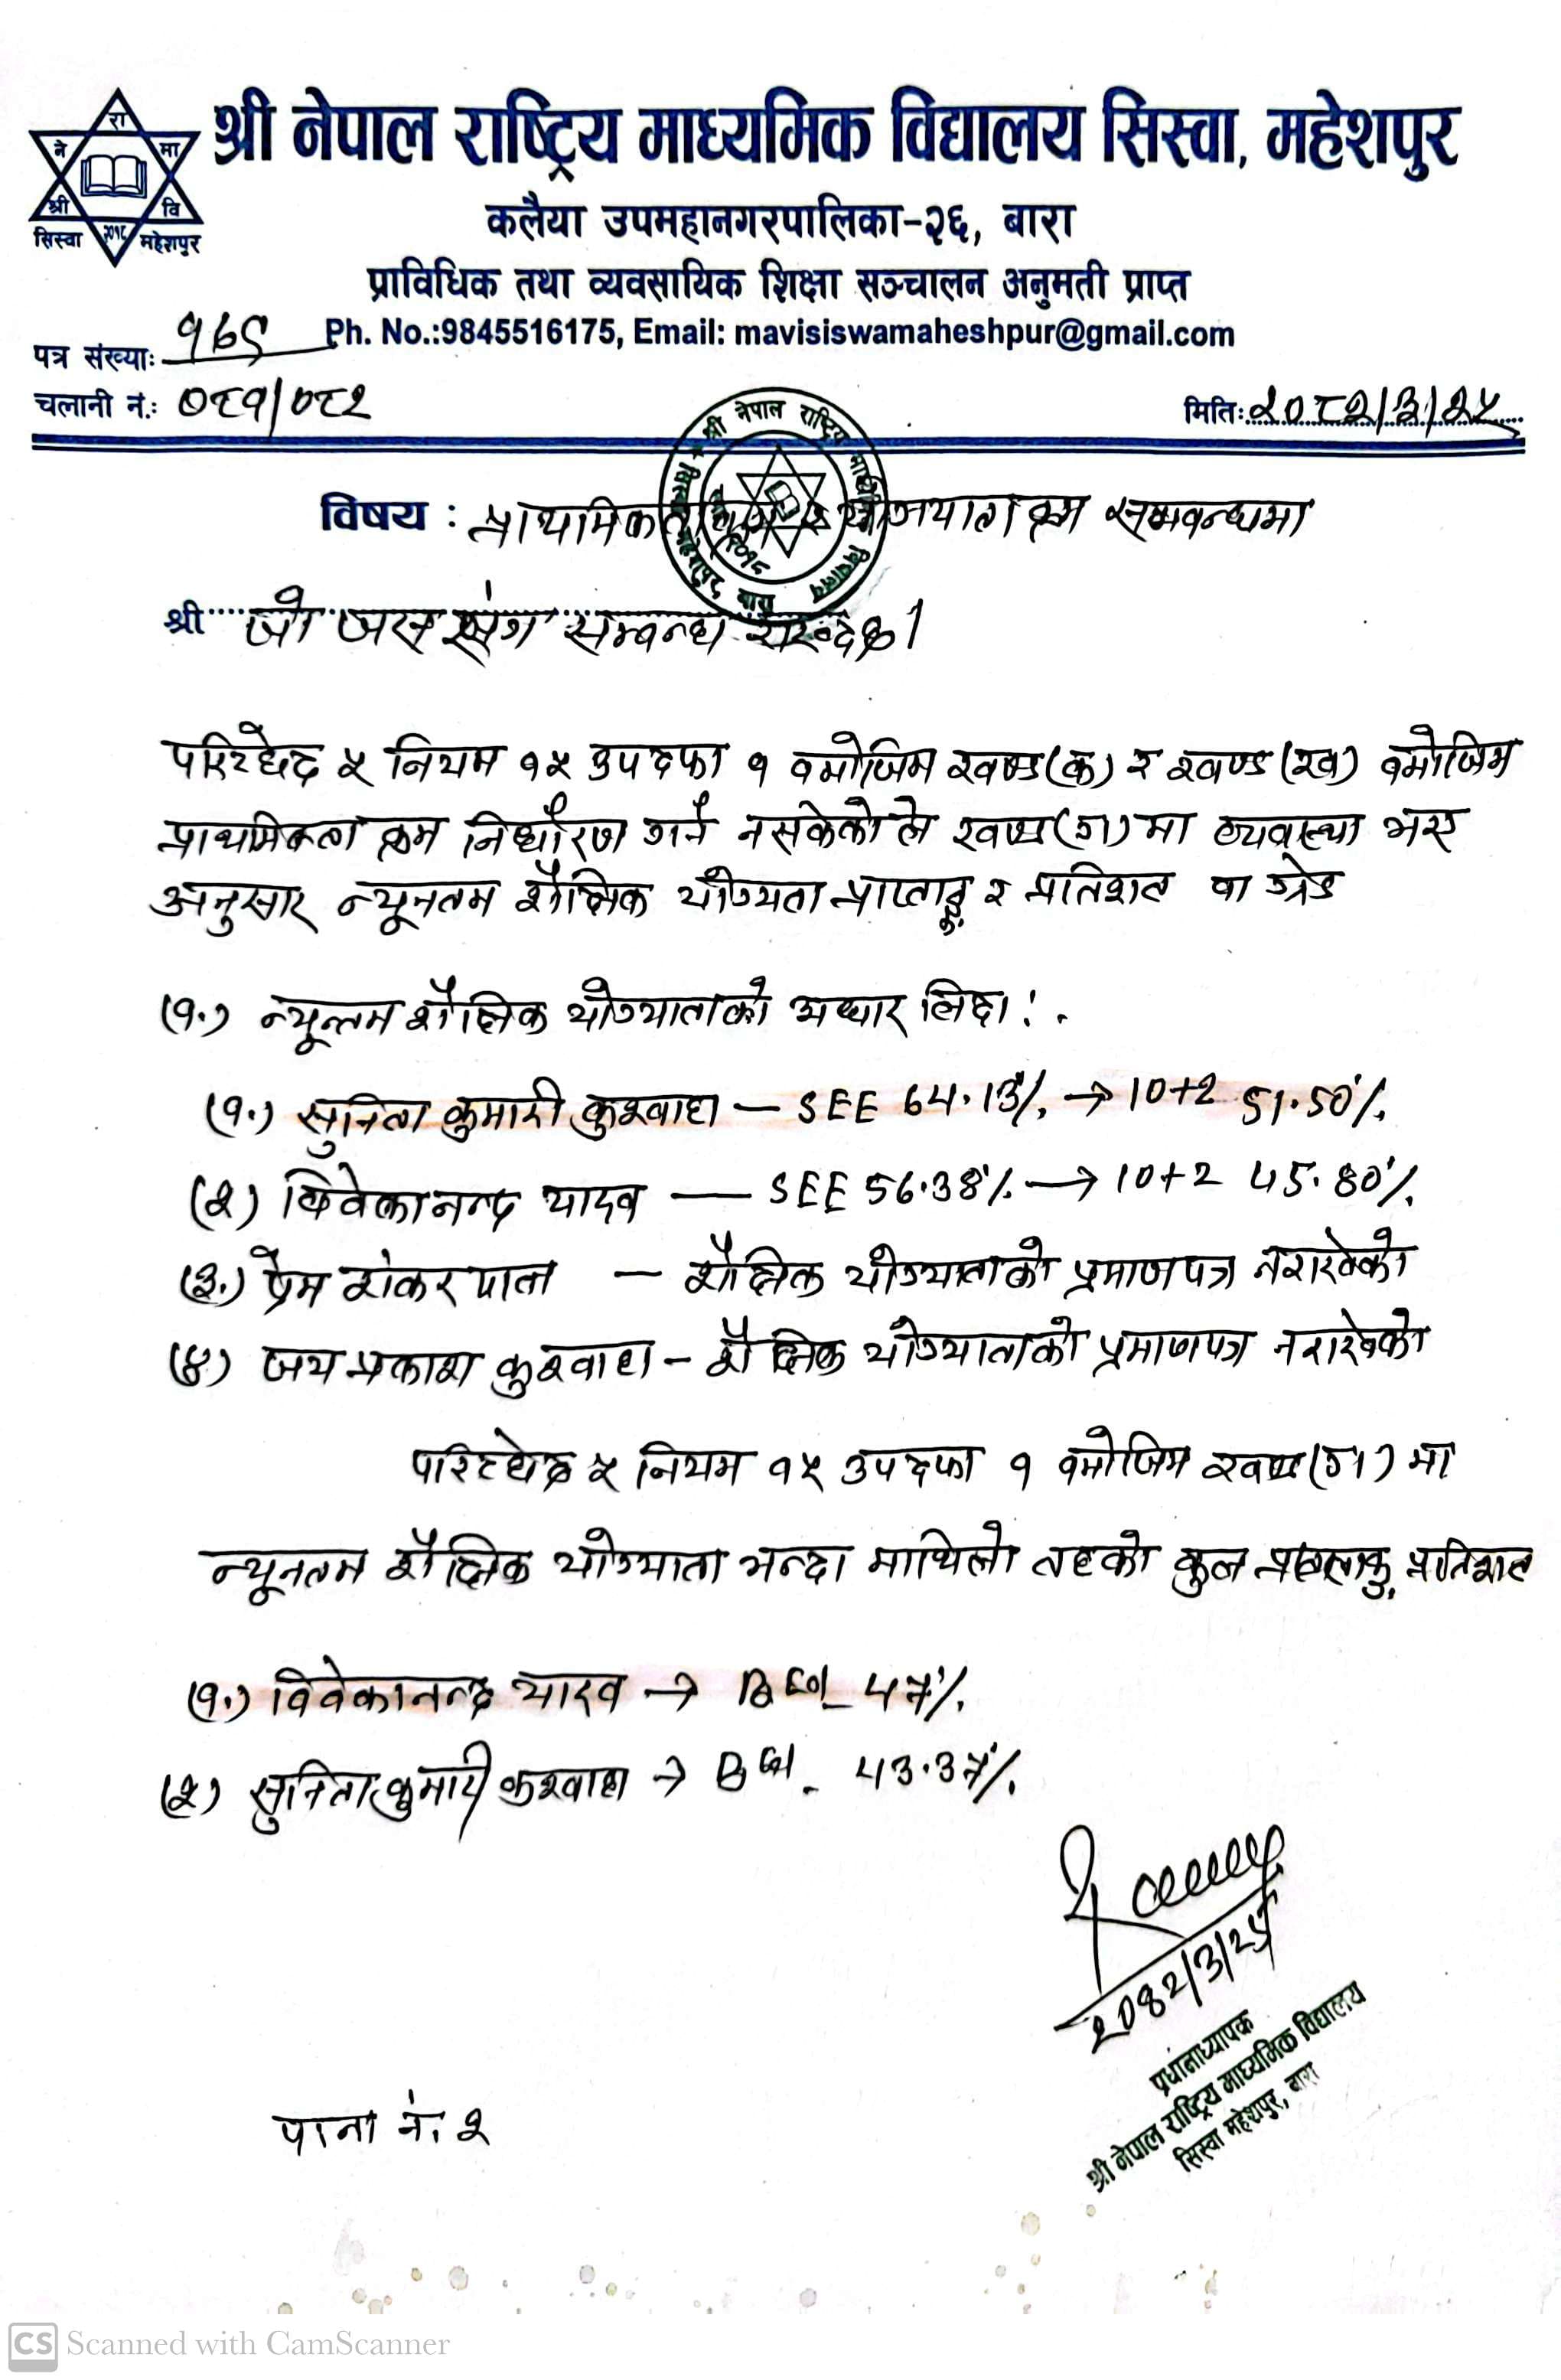 रा
ने मा
श्री वि
सिस्वा २०१८ महेशपुर
श्री नेपाल राष्ट्रिय माध्यमिक विद्यालय सिस्वा, महेशपुर
कलैया उपमहानगरपालिका-२६, बारा
प्राविधिक तथा व्यवसायिक शिक्षा सञ्चालन अनुमती प्राप्त
Ph. No.:9845516175, Email: mavisiswamaheshpur@gmail.com
पत्र संख्या: १७९
चलानी नं.: ०८१/०८२
मिति: २०८२/३/२५
श्री नेपाल राष्ट्रिय माध्यमिक विद्यालय
विषय : प्राथमिकता क्रम सम्बन्धमा
श्री जो जस संग सम्बन्ध राख्दछ।
परिच्छेद ५ नियम १५ उपदफा १ बमोजिम खण्ड (क) र खण्ड (ख) बमोजिम
प्राथमिकता क्रम निर्धारण गर्न नसकेकोले खण्ड (ग) मा व्यवस्था भए
अनुसार न्यूनतम शैक्षिक योग्यता प्राप्ताङ्क र प्रतिशत वा ग्रेड
(१.) न्यून्तम शैक्षिक योग्याताको अधार लिदा :.
(१.) सुनिता कुमारी कुश्वाहा — SEE 64.13% → 10+2 51.50%.
(२) विवेकानन्द यादव — SEE 56.38% → 10+2 45.80%.
(३.) प्रेम शंकर पाल — शैक्षिक योग्याताको प्रमाणपत्र नराखेको
(४) जय प्रकाश कुश्वाहा - शैक्षिक योग्याताको प्रमाणपत्र नराखेको
परिच्छेद ५ नियम १५ उपदफा १ बमोजिम खण्ड (ग) मा
न्यूनतम शैक्षिक योग्याता भन्दा माथिलो तहको कुल प्रतिशत
(१.) विवेकानन्द यादव → B Ed - 47%.
(२) सुनिता कुमारी कुश्वाहा → B Ed - 43.37%.
2082/3/25
प्रधानाध्यापक
श्री नेपाल राष्ट्रिय माध्यमिक विद्यालय
सिस्वा महेशपुर, बारा
पाना नं. २
CS Scanned with CamScanner